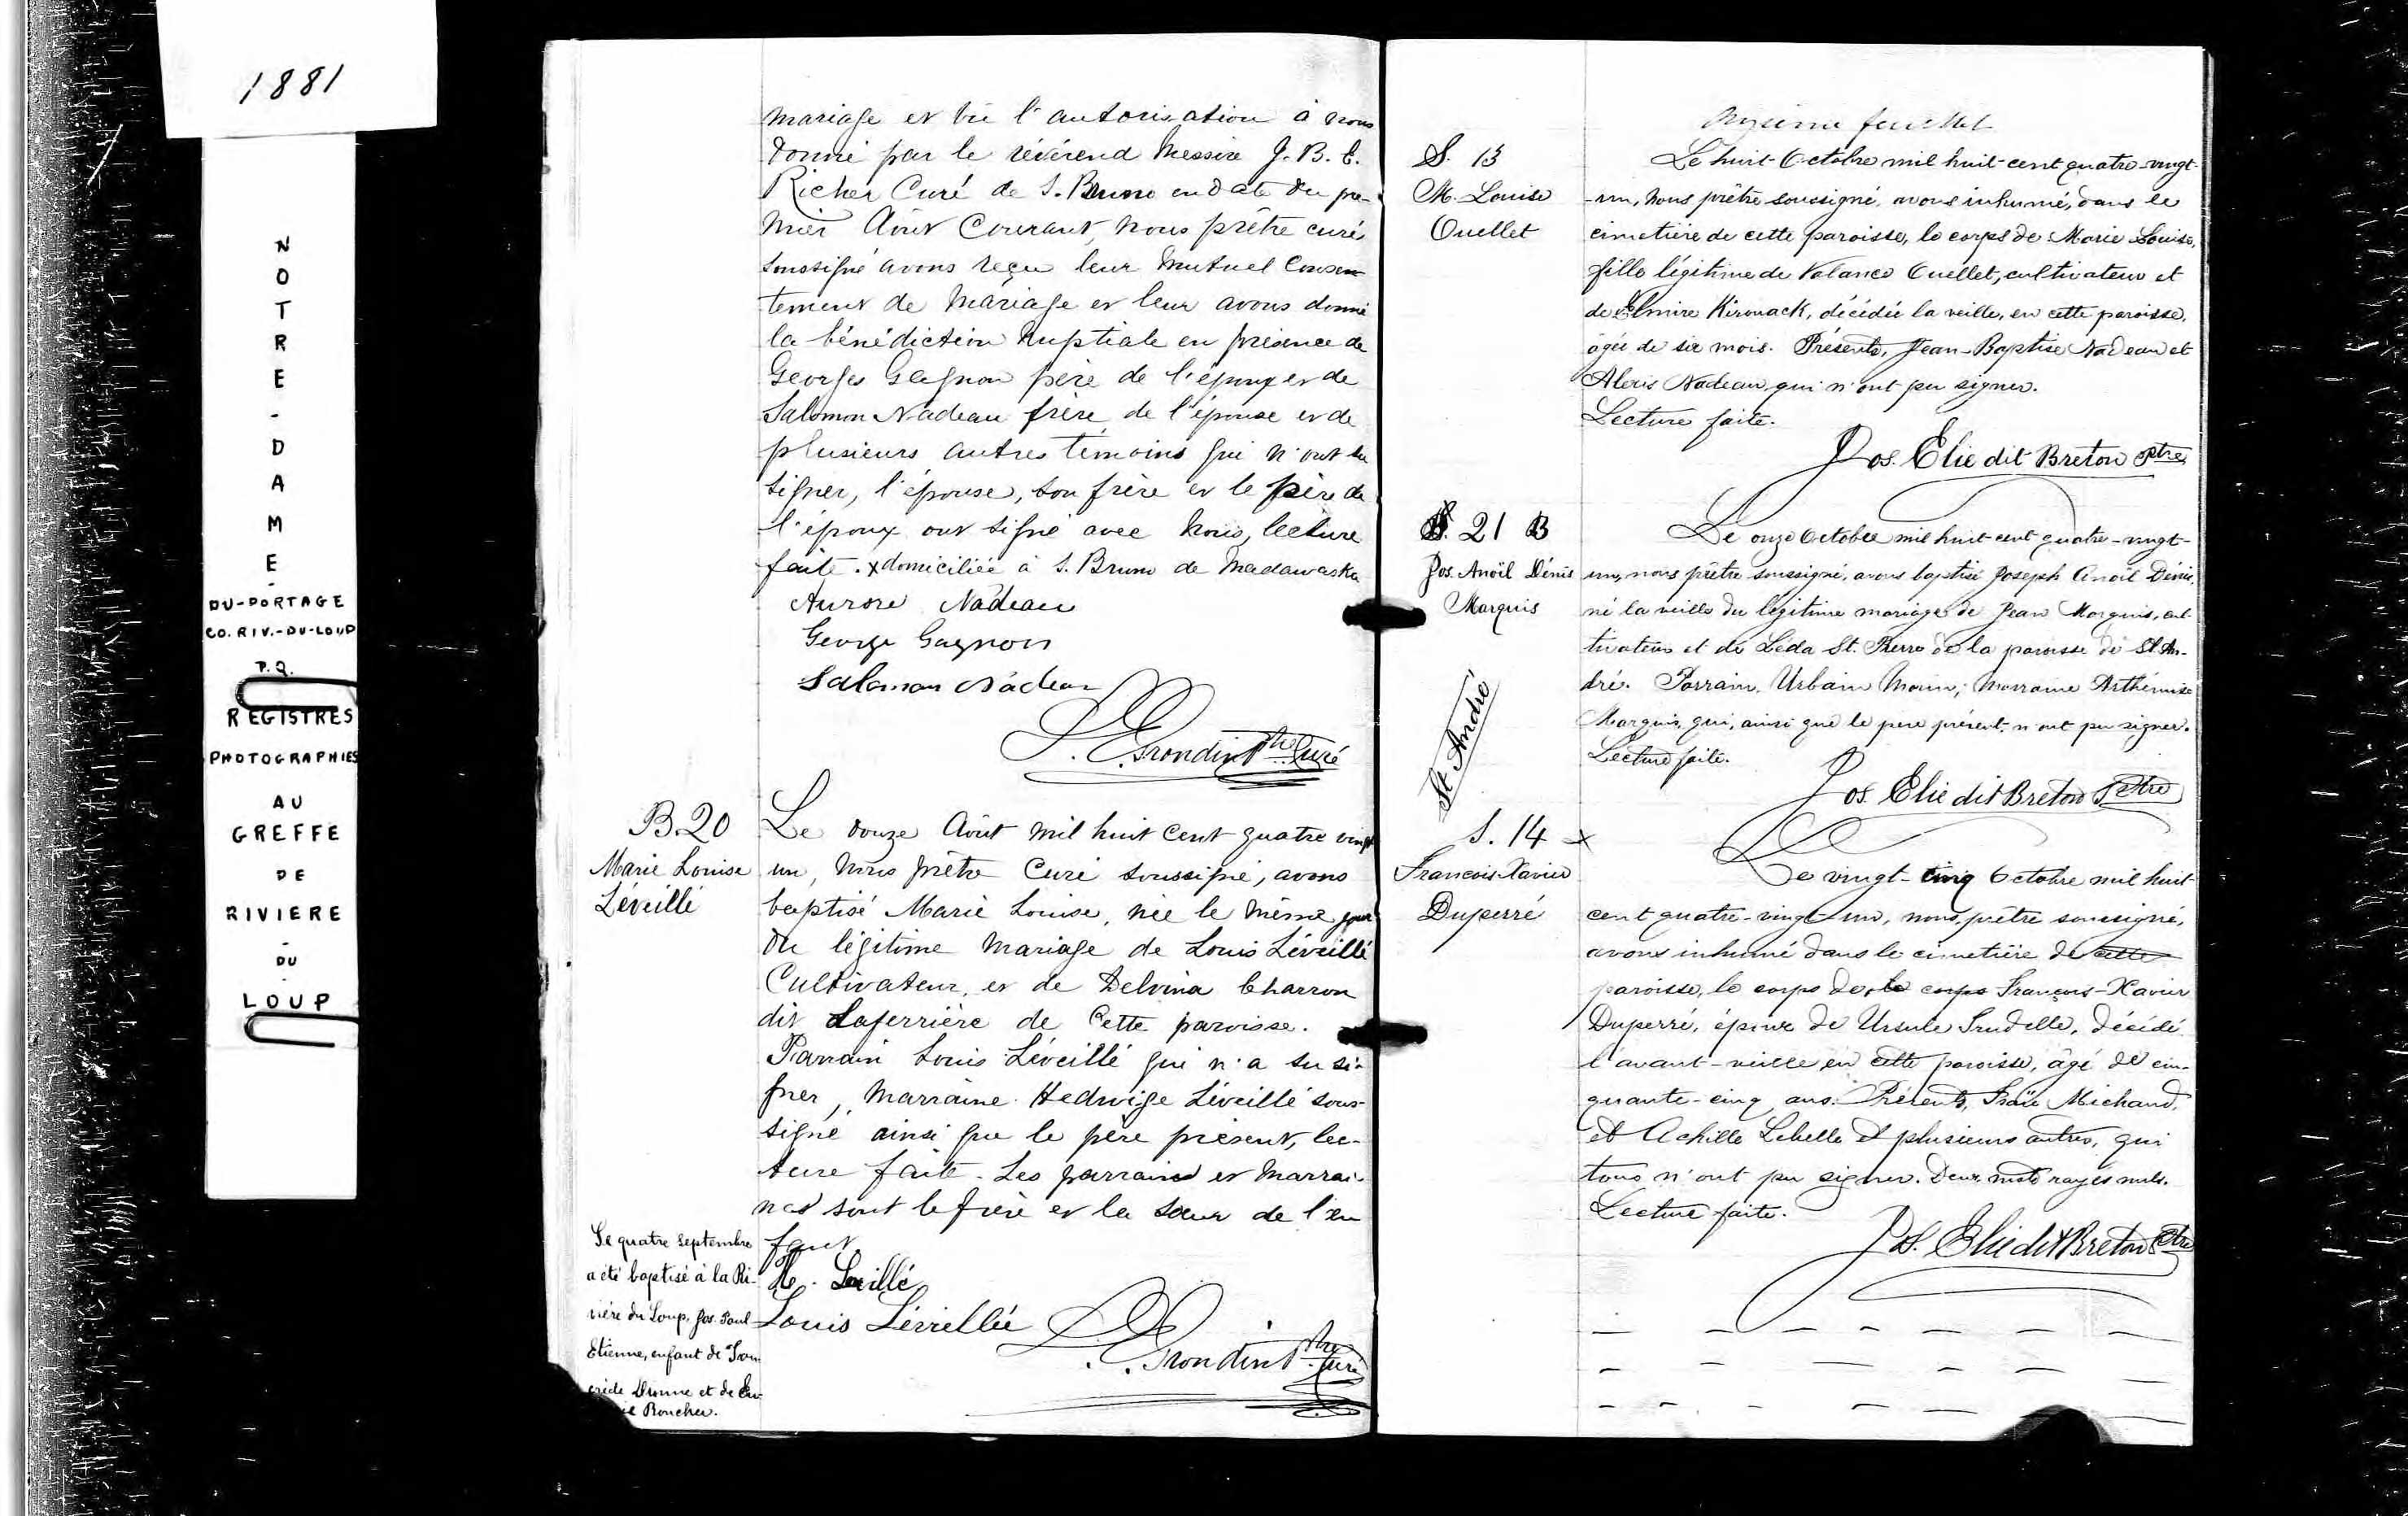 1881
NOTRE-DAME-
DU-PORTAGE
CO. RIV.-DU-LOUP
P.Q.
REGISTRES
PHOTOGRAPHIES
AU
GREFFE
DE
RIVIERE
-
DU
-
LOUP
mariage et vu l'autorisation à nous
donné par le révérend Messire J. B. C.
Richer Curé de S. Bruno en date du pre-
mier Août Courant, nous prêtre curé
soussigné avons reçu leur mutuel Consen
tement de Mariage et leur avons donné
la bénédiction nuptiale en présence de
Georges Gagnon père de l'époux et de
Salomon Nadeau frère de l'épouse et de
plusieurs autres témoins qui n'ont su
signer, l'épouse, son frère et le père de
l'époux ont signé avec nous, lecture
faite. x domiciliée à S. Bruno de Madawaska
Aurore Nadeau
George Gagnon
Salomon Nadeau
Grondin Ptre Curé
B. 20
Marie Louise
Léveillé
Le douze Août mil huit Cent quatre vingt
un, Nous prêtre Curé soussigné, avons
baptisé Marie Louise, née le même jour
du légitime Mariage de Louis Léveillé
Cultivateur, et de Delvina Charron
dit Laferrière de Cette paroisse.
Parrain Louis Léveillé qui n'a su si-
gner, Marraine Hedwige Léveillé sous-
signé ainsi que le père présent, lec-
ture faite. Les parrains et Marrai-
nes sont le frère et la soeur de l'en
fant.
Le quatre septembre
a été baptisé à la Ri-
vière du Loup, Jos. Paul
Etienne, enfant de
Dionne et de
Boucher.
Louis Lévielleé
Grondin Ptre Curé
Onzième feuillet
S. 13
M. Louise
Ouellet
Le huit Octobre mil huit-cent quatre-vingt-
-un, nous prêtre soussigné, avons inhumé, dans le
cimetière de cette paroisse, le corps de Marie Louise,
fille légitime de Valance Ouellet, cultivateur et
de Elmire Kirouack, décédée la veille, en cette paroisse,
âgée de six mois. Présents, Jean-Baptise Nadeau et
Alexis Nadeau, qui n'ont pu signer.
Lecture faite.
Jos. Elie dit Breton Ptre
21 B
Jos. Anoïl Dénis
Marquis
St. André
Le onze Octobre mil huit-cent quatre-vingt-
un, nous prêtre soussigné, avons baptisé Joseph Anoïl Dénis,
né la veille du légitime mariage de Jean Marquis, cul-
tivateur et de Léda St. Pierre de la paroisse de St. An-
dré. Parrain, Urbain Morin; marraine Arthémise
Marquis, qui, ainsi que le père présent n'ont pu signer.
Lecture faite.
Jos. Elie dit Breton Ptre
S. 14 x
Francois-Xavier
Duperré
Le vingt-cinq Octobre mil huit-
cent quatre-vingt-un, nous, prêtre soussigné,
avons inhumé dans le cimetière de cette
paroisse, le corps de le corps François-Xavier
Duperré, époux de Ursule Trudelle, décédé
l'avant-veille en cette paroisse, âgé de cin-
quante-cinq ans. Présents, Michaud,
et Achille Lebelle et plusieurs autres, qui
tous n'ont pu signer. Deux mots rayés nuls.
Lecture faite.
Jos. Elie dit Breton Ptre